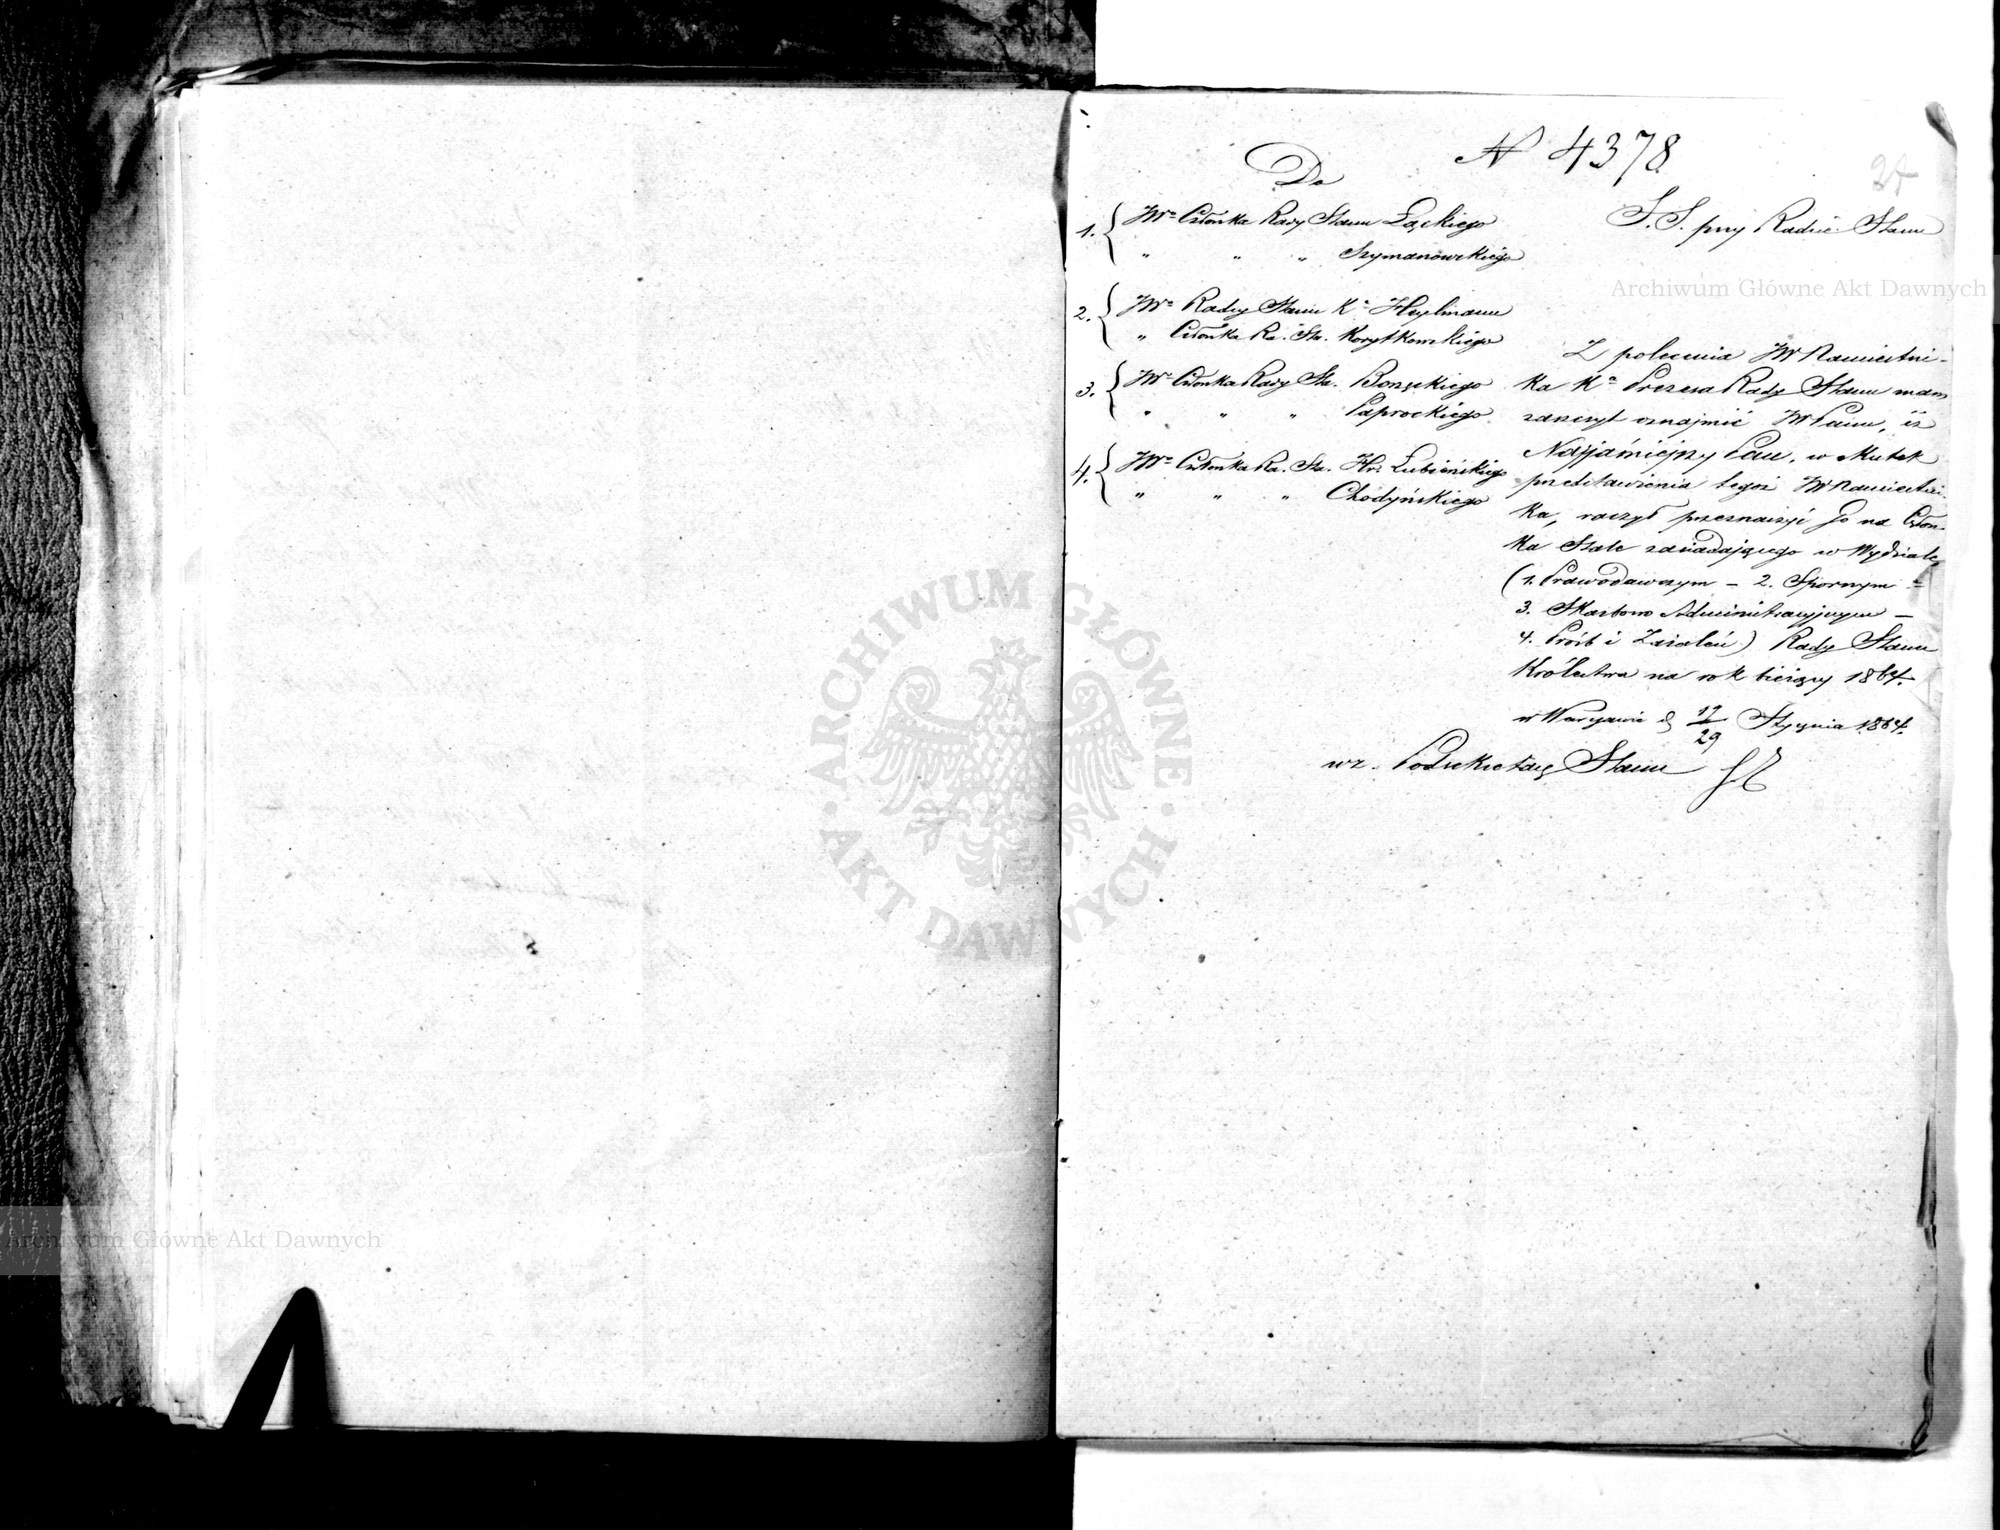 N 4378
27
Do
S. S. przy Radzie Stanu
1. JWo Członka Rady Stanu Łąckiego
" " " Szymanowskiego
2. JWo Radcy Stanu Ko Heylmann
" Członka Ra. Sta. Korytkowskiego
3. JWo Członka Rady Sta. Borzęckiego
" " " Paprockiego
4. JWo Członka Ra. Sta. Hr. Łubieńskiego
" " " Chodyńskiego
Z polecenia JW Namiestni-
ka Ko Prezesa Rady Stanu mam
zaszczyt oznajmić JWPanu, iż
Najjaśniejszy Pan, w skutek
przedstawienia tegoż JW Namiestni-
ka, raczył przeznaczyć Go na Człon-
ka Stale zasiadającego w Wydziale
(1. Prawodawczym – 2. Spornym –
3. Skarbowo Administracyjnym –
4. Próśb i Zażaleń) Rady Stanu
Królestwa na rok bieżący 1864.
w Warszawie d 17/29 Stycznia 1864.
wz. Podsekretarz Stanu
ARCHIWUM GŁÓWNE
AKT DAWNYCH
Archiwum Główne Akt Dawnych
Archiwum Główne Akt Dawnych